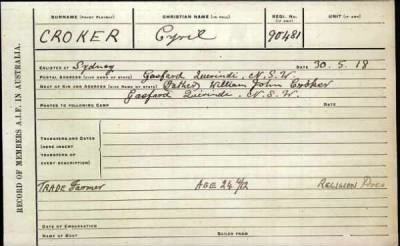 RECORD OF MEMBERS A.I.F. IN AUSTRALIA.
SURNAME (PRINT PLAINLY) CHRISTIAN NAME (IN FULL) REGL. NO. UNIT
CROKER Cyril 90481
ENLISTED AT Sydney DATE 30.5.18
POSTAL ADDRESS (GIVE NAME OF STATE) Gaspard Quirindi, N.S.W.
NEXT OF KIN AND ADDRESS (GIVE NAME OF STATE) Father William John Croker
Gaspard Quirindi, N.S.W.
POSTED TO FOLLOWING CAMP
TRANSFERS AND DATES
(HERE INSERT
TRANSFERS OF
EVERY DESCRIPTION)
TRADE Farmer AGE 24 /12 RELIGION Pres
DATE OF EMBARKATION
NAME OF BOAT SAILED FROM